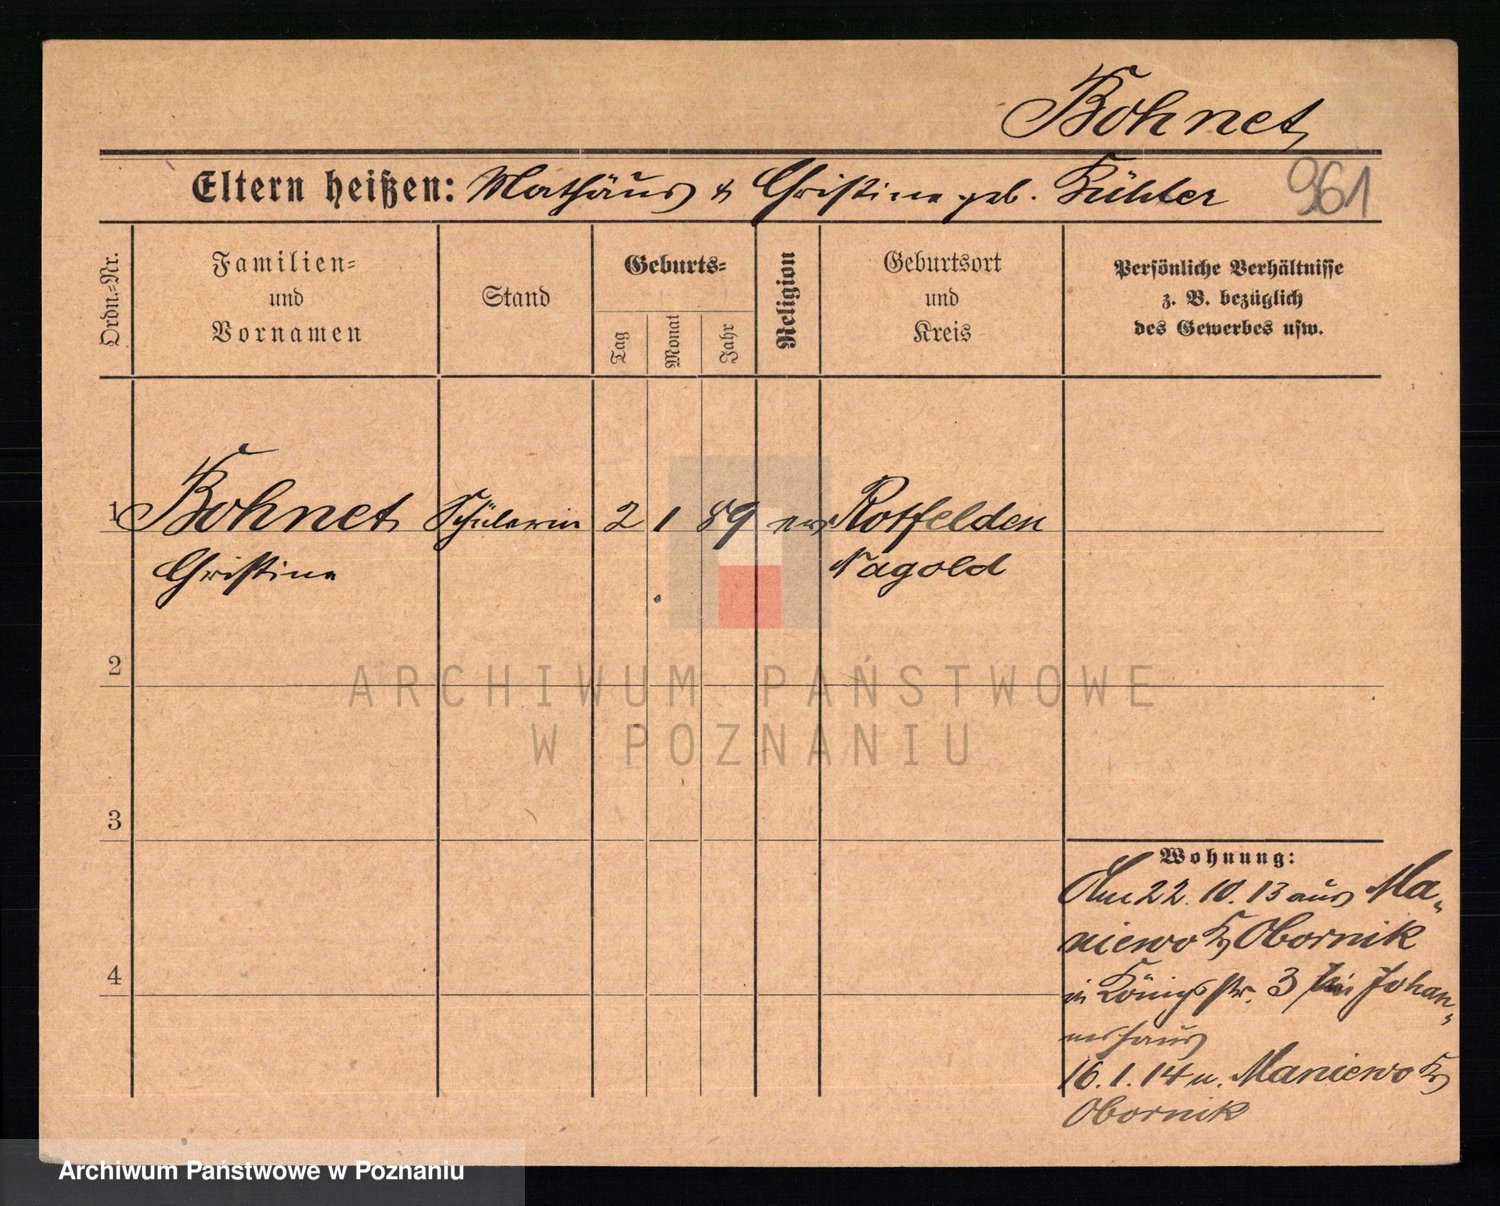 Bohnet
Eltern heißen: Mathäus & Christine geb. Kühler
961
Ordn.=Nr.
Familien=
und
Vornamen
Stand
Geburts=
Tag
Monat
Jahr
Religion
Geburtsort
und
Kreis
Persönliche Verhältnisse
z. B. bezüglich
des Gewerbes usw.
1 Bohnet Schülerin 2 1 89 ev Rotfelden
Christine Nagold
2
ARCHIWUM PAŃSTWOWE
W POZNANIU
3
4
Wohnung:
Am 22. 10. 13 aus Ma-
niewo Kr Obornik
in Königsstr. 3 Johan-
neshaus
16. 1. 14 n. Maniewo Kr
Obornik
Archiwum Państwowe w Poznaniu